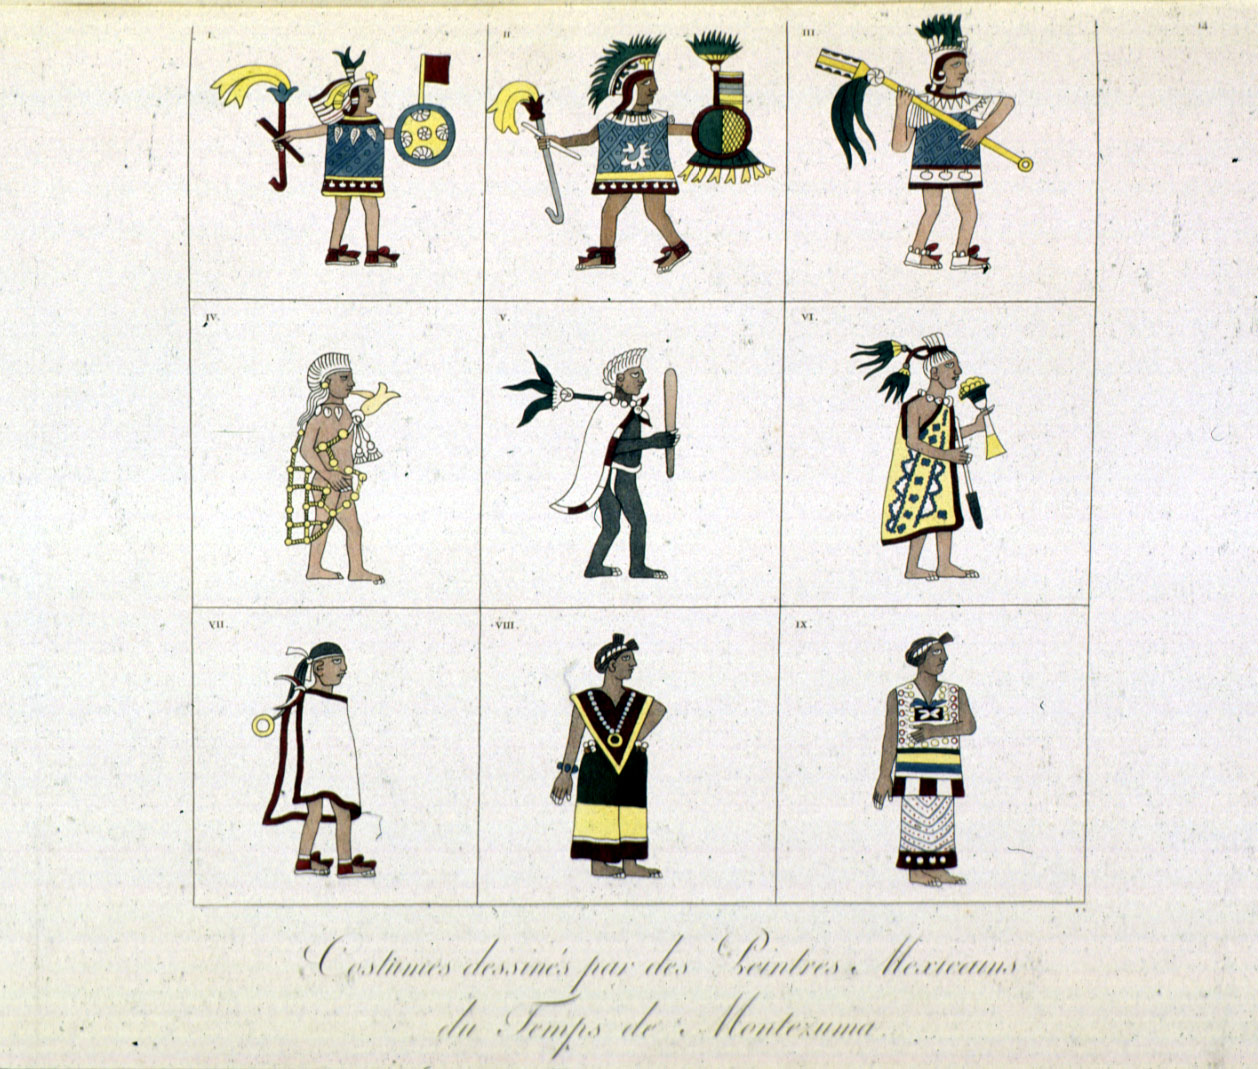 I.
II
III
14
IV.
V.
VI.
VII.
VIII.
IX.
Costumes dessinés par des Peintres Mexicains
du Temps de Montezuma